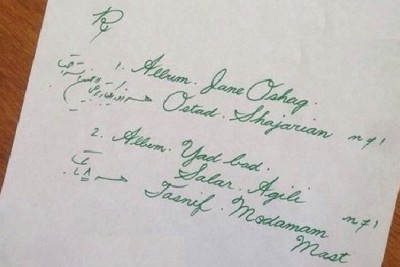 Rx
1. Album. Jane Oshag.
Ostad. Shajarian n≠1
2. Album. Yad bad.
Salar. Agili n≠1
Tasnif. Modamam
Mast